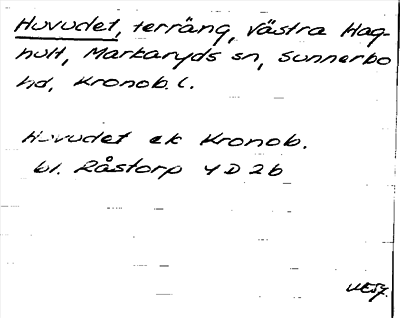 Huvudet, terräng, Västra Hag-
hult, Markaryds sn, Sunnerbo
hd, Kronob. l.
Huvudet ek Kronob.
bl. Råstorp 4 D 2b